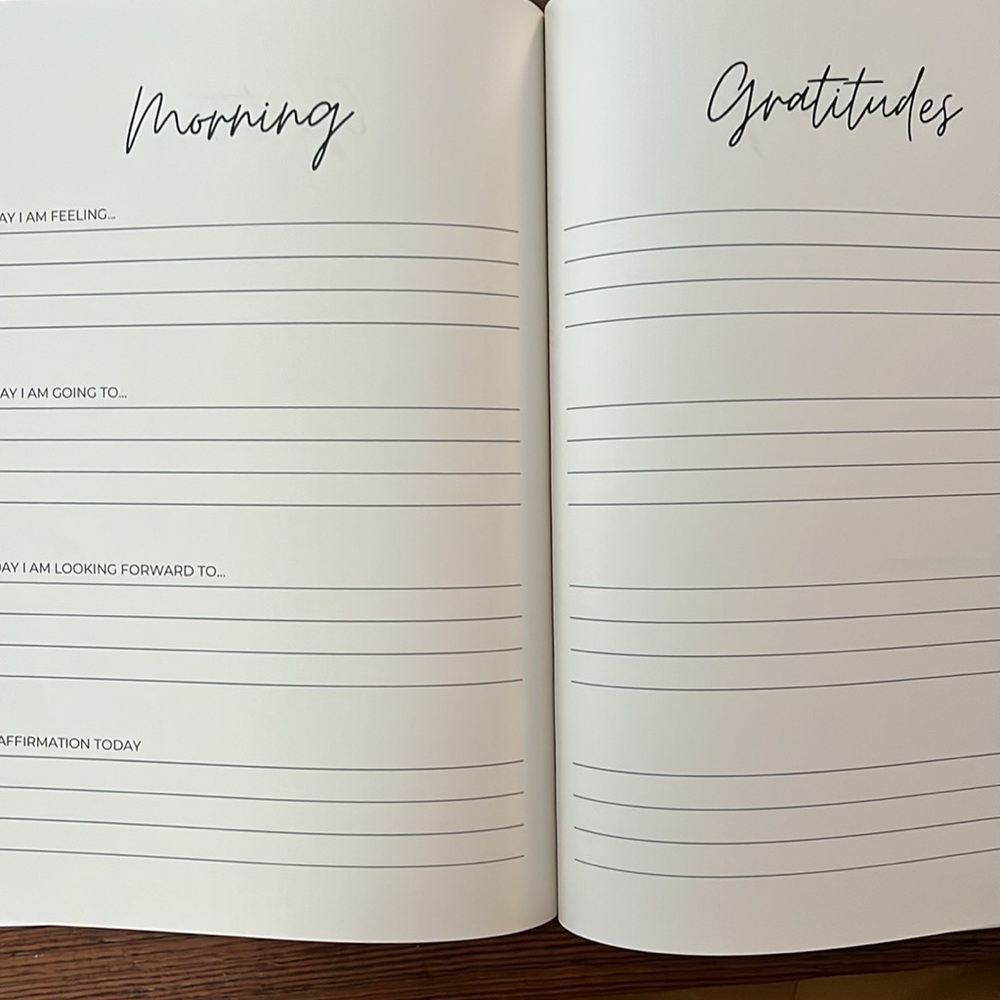 Morning
AY I AM FEELING...
AY I AM GOING TO...
AY I AM LOOKING FORWARD TO...
AFFIRMATION TODAY
Gratitudes